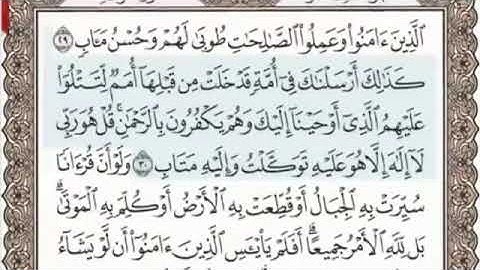 ٱلَّذِينَ ءَامَنُوا۟ وَعَمِلُوا۟ ٱلصَّـٰلِحَـٰتِ طُوبَىٰ لَهُمْ وَحُسْنُ مَـَٔابٍ ٢٩
كَذَٰلِكَ أَرْسَلْنَـٰكَ فِىٓ أُمَّةٍ قَدْ خَلَتْ مِن قَبْلِهَآ أُمَمٌ لِّتَتْلُوَا۟
عَلَيْهِمُ ٱلَّذِىٓ أَوْحَيْنَآ إِلَيْكَ وَهُمْ يَكْفُرُونَ بِٱلرَّحْمَـٰنِ ۚ قُلْ هُوَ رَبِّى
لَآ إِلَـٰهَ إِلَّا هُوَ عَلَيْهِ تَوَكَّلْتُ وَإِلَيْهِ مَتَابِ ٣٠ وَلَوْ أَنَّ قُرْءَانًا
سُيِّرَتْ بِهِ ٱلْجِبَالُ أَوْ قُطِّعَتْ بِهِ ٱلْأَرْضُ أَوْ كُلِّمَ بِهِ ٱلْمَوْتَىٰ ۗ
بَل لِّلَّهِ ٱلْأَمْرُ جَمِيعًا ۗ أَفَلَمْ يَا۟يْـَٔسِ ٱلَّذِينَ ءَامَنُوٓا۟ أَن لَّوْ يَشَآءُ